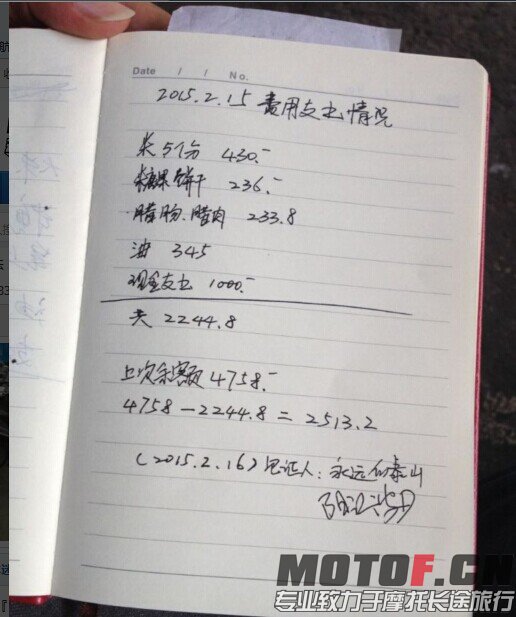 Date / / No.
2015.2.15 费用支出情况
米5份 430.-
糖果饼干 236.-
腊肠、腊肉 233.8
油 345
现金支出 1000.-
共 2244.8
上次余额 4758.-
4758-2244.8=2513.2
(2015.2.16)见证人:永远的泰山
MOTOF.CN
专业致力于摩托长途旅行